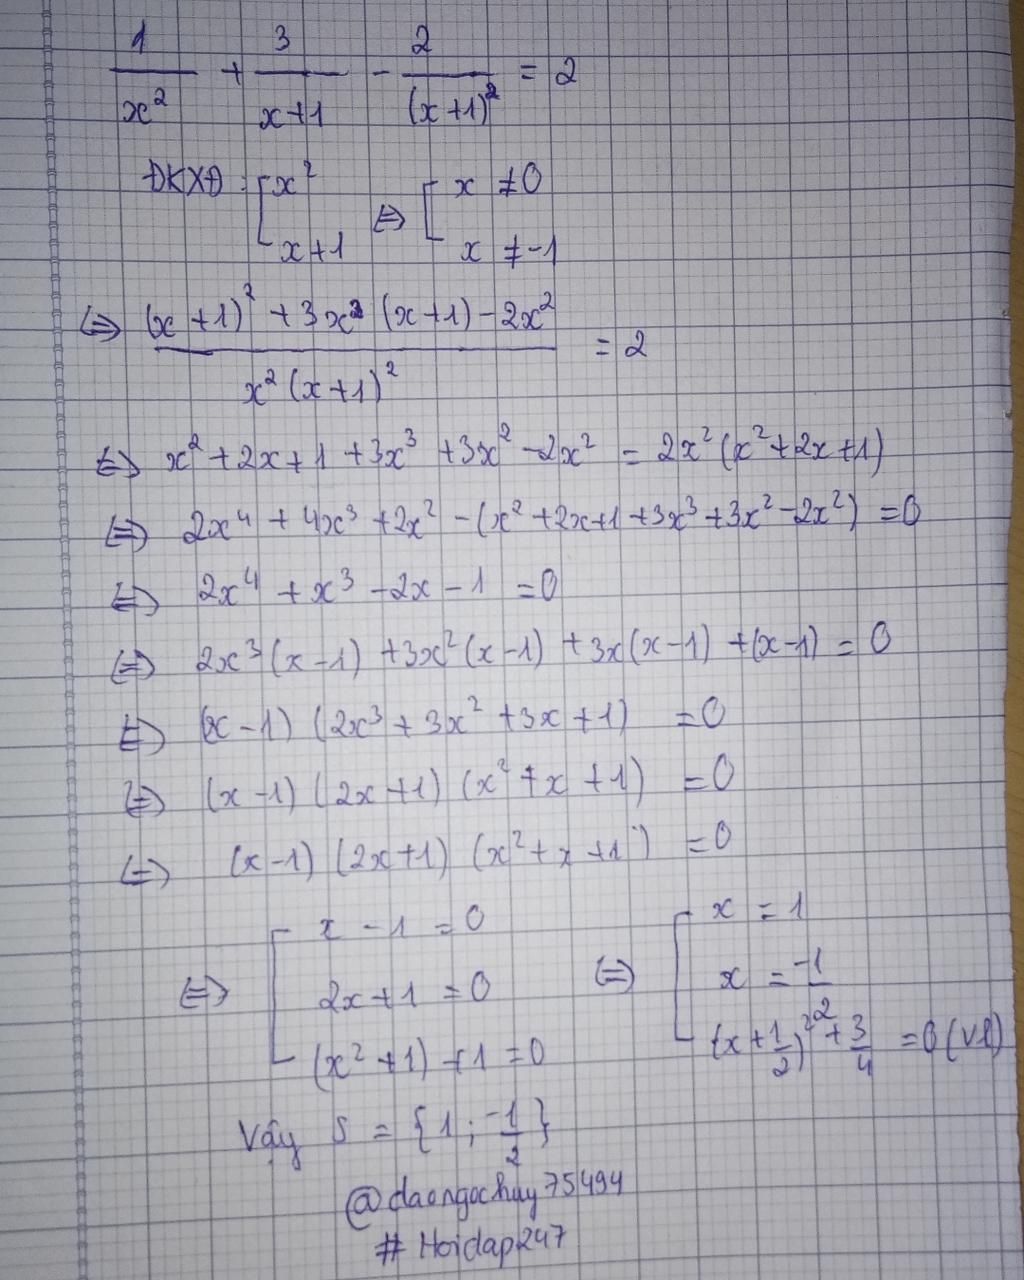 1/x² + 3/x+1 - 2/(x+1)² = 2
ĐKXĐ: [x² ⇔ [x ≠ 0
x+1 x ≠ -1
⇔ (x+1)² + 3x² (x+1) - 2x² / x²(x+1)² = 2
⇔ x² + 2x + 1 + 3x³ + 3x² - 2x² = 2x² (x² + 2x + 1)
⇔ 2x⁴ + 4x³ + 2x² - (x² + 2x + 1 + 3x³ + 3x² - 2x²) = 0
⇔ 2x⁴ + x³ - 2x - 1 = 0
⇔ 2x³(x-1) + 3x²(x-1) + 3x(x-1) + (x-1) = 0
⇔ (x-1) (2x³ + 3x² + 3x + 1) = 0
⇔ (x-1) (2x+1) (x² + x + 1) = 0
⇔ (x-1) (2x+1) (x² + x + 1) = 0
⇔ [x - 1 = 0 ⇔ [x = 1
2x + 1 = 0 x = -1/2
(x² + 1) + 1 = 0 (x + 1/2)² + 3/4 = 0 (Vl)
Vậy S = {1; -1/2}
@daongochuy75494
# Hoidap247